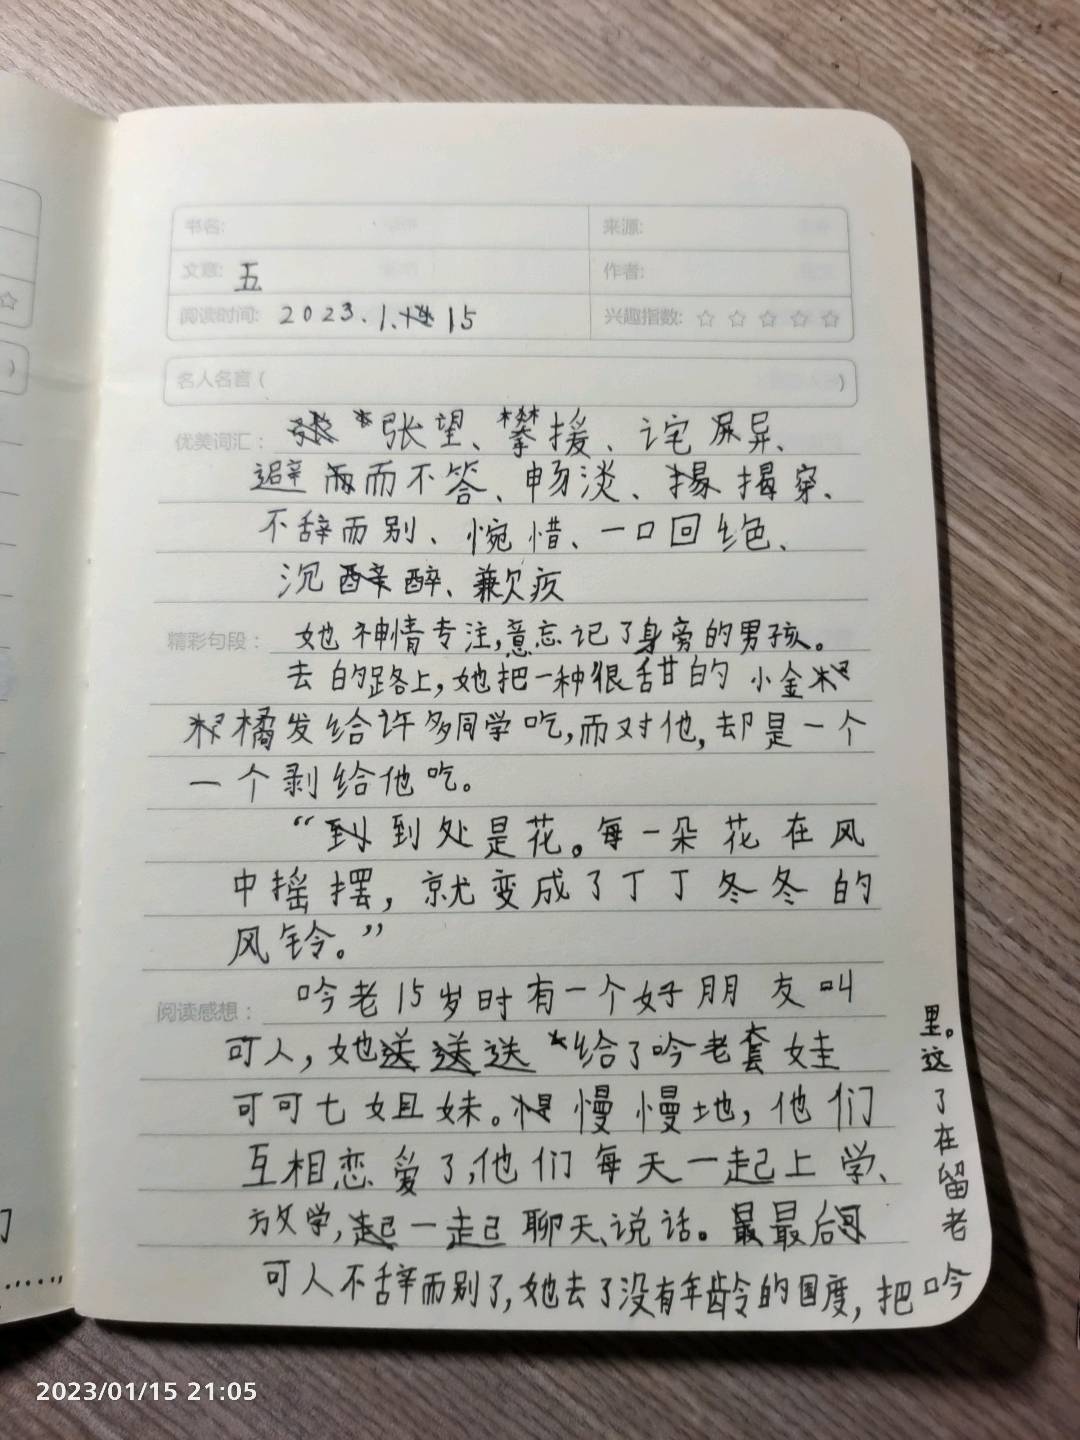 书名:
来源:
文章: 五
作者:
阅读时间: 2023.1. 15
兴趣指数: ☆ ☆ ☆ ☆ ☆
名人名言 ( )
优美词汇: 张望、攀援、诧异、
避而不答、畅谈、揭穿、
不辞而别、惋惜、一口回绝、
沉醉、歉疚
精彩句段: 她神情专注,意忘记了身旁的男孩。
去的路上,她把一种很甜的 小金
橘发给许多同学吃,而对他,却是一个
一个剥给他吃。
“到处是花。每一朵花在风
中摇摆,就变成了丁丁冬冬的
风铃。”
阅读感想: 吟老15岁时有一个好朋友叫
可人,她送给了吟老套娃
可可七姐妹。慢慢地,他们
互相恋爱了,他们每天一起上学、
放学,一起聊天、说话。最后
可人不辞而别了,她去了没有年龄的国度,把吟
老留在了这里。
2023/01/15 21:05